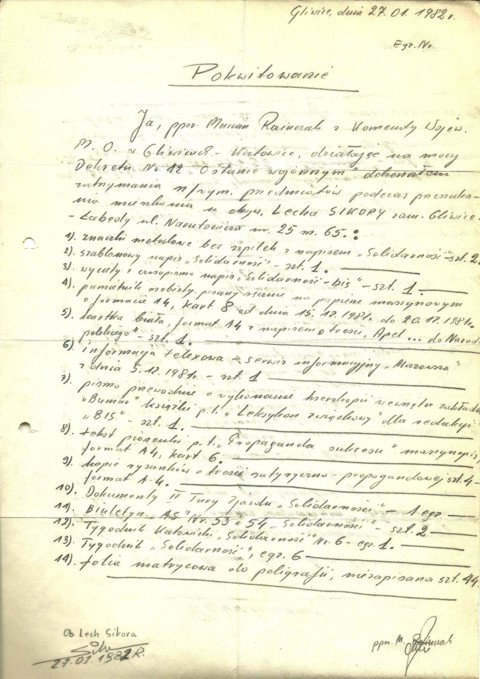 Gliwice, dnia 27.01.1982r.
Egz. Nr.
Pokwitowanie
Ja, ppor. Marian Rainczak z Komendy Wojew.
M. O. w Gliwicach - Katowice, działając na mocy
Dekretu Nr 12 "O stanie wojennym" dokonałem
zatrzymania n/wym. przedmiotów podczas przeszuka-
nia mieszkania u obyw. Lecha SIKORY zam. Gliwice-
- Łabędy ul. Narutowicza nr. 25 m. 65.:
1). znaczki metalowe bez szpilek z napisem "Solidarność" - szt. 2
2). szablonowy napis "Solidarność" - szt. 1.
3). wycięty z czasopisma napis "Solidarność - bis" - szt. 1.
4). pamiętnik osobisty, pisany na papierze maszynowym
o formacie 14, kart 8 od dnia 15.12.1981r. do 20.12.1981r.
5). kartka biała, format 14 z napisem o treści, Apel ... do Narodu
polskiego" - szt. 1.
6). informacja telexowa - serwis informacyjny "Mazowsza"
z dnia 5.12.1981r. - szt. 1
7). pismo przewodnie o wykonanie wewnątrz zakładu
"Bumar" książki p.t. "Leksykon związkowy" dla redakcji
"BIS" - szt. 1.
8). tekst piosenki p.t. "Propaganda sukcesu" maszynopis,
format A4, kart 6.
9). kopie rysunków o treści satyryczno - propagandowej szt. 4 -
format A-4.
10). Dokumenty II Tury Zjazdu "Solidarność" - 1 egz.
11). Biuletyn "AS" Nr. 53 i 54 "Solidarność" - szt. 2
12). Tygodnik Katowicki "Solidarność" Nr. 6 - egz. 1.
13). Tygodnik "Solidarność", egz. 6
14). folia matrycowa do poligrafii, niezapisana szt. 44.
Ob Lech Sikora
27.01.1982 R.
ppor. M.